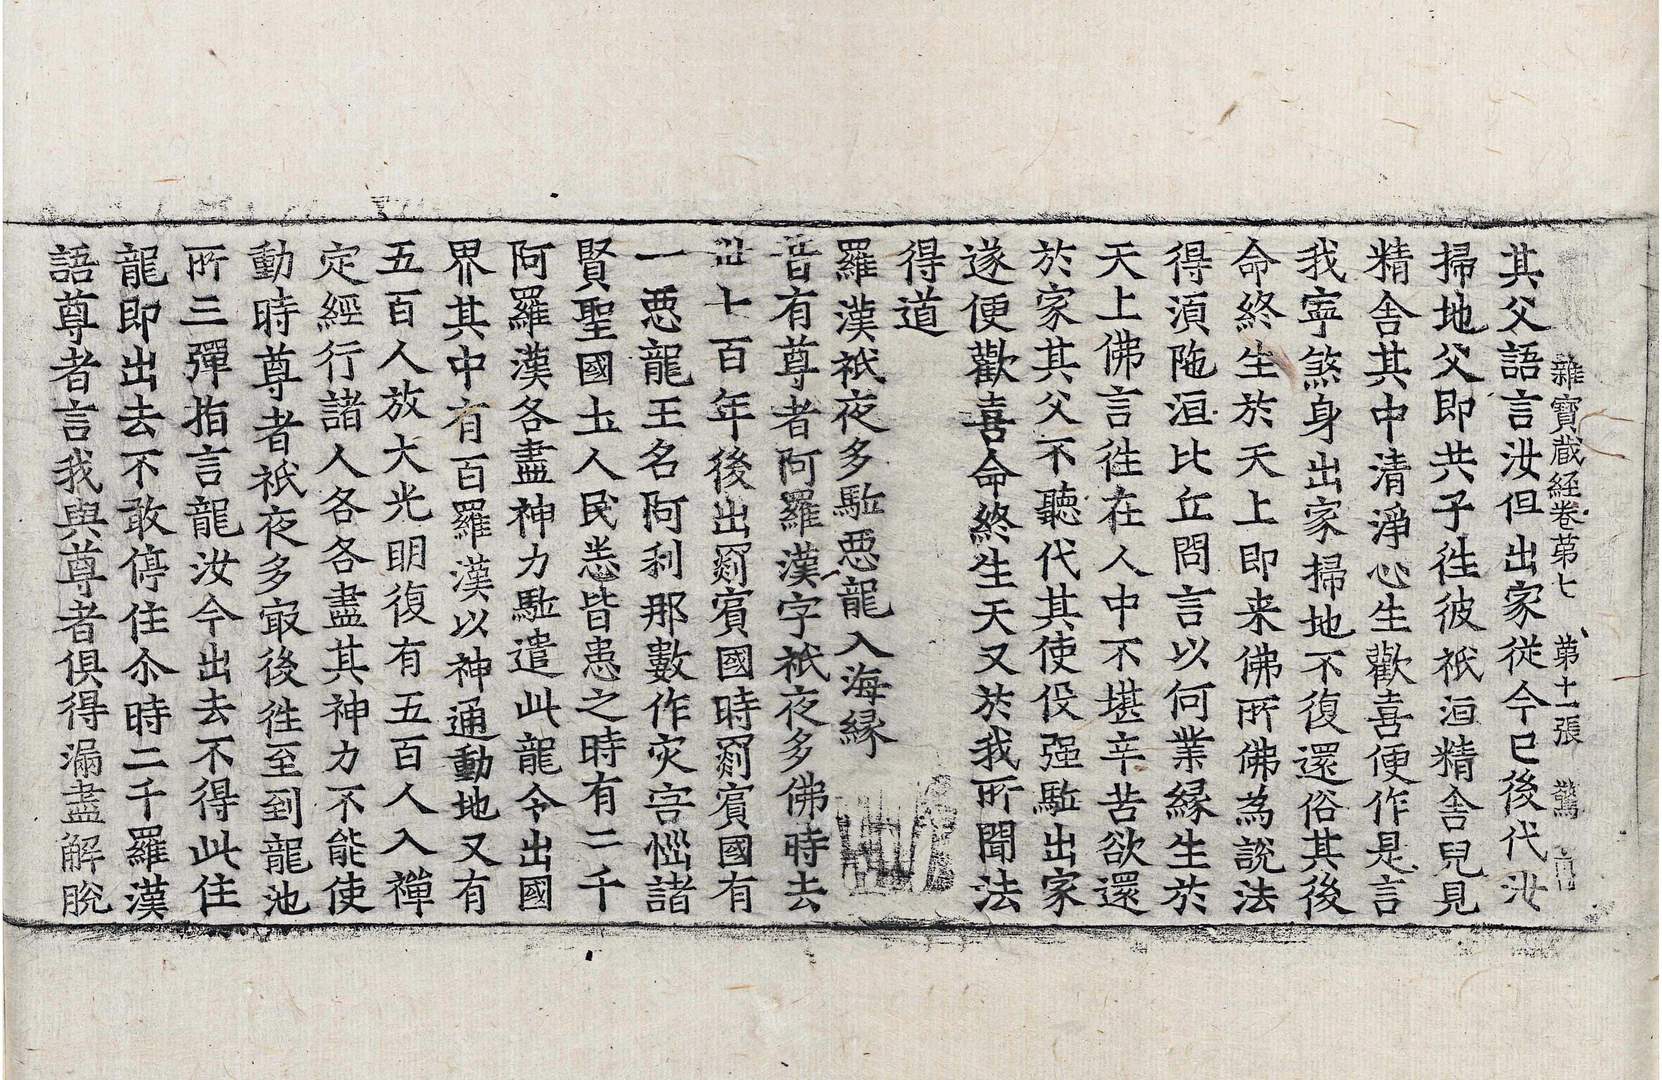 雜寶蔵經卷苐七　苐十一張　驚
其父語言汝但出家從今已後代汝
掃地父即共子徃彼祇洹精舎兒見
精舎其中清淨心生歡喜便作是言
我寧煞身出家掃地不復還俗其後
命終生於天上即来佛所佛為說法
得湏陁洹比丘問言以何業縁生於
天上佛言徃在人中不堪辛苦欲還
於家其父不聽代其使役强駈出家
遂便歡喜命終生天又於我所聞法
得道
羅漢祇夜多駈惡龍入海縁
昔有尊者阿羅漢字祇夜多佛時去
丗七百年後出罽賔國時罽賔國有
一惡龍王名阿利那數作灾害惱諸
賢聖國土人民悉皆患之時有二千
阿羅漢各盡神力駈遣此龍令出國
界其中有百羅漢以神通動地又有
五百人放大光明復有五百人入禪
定經行諸人各各盡其神力不能使
動時尊者祇夜多㝡後徃至到龍池
所三彈指言龍汝今出去不得此住
龍即出去不敢停住尒時二千羅漢
語尊者言我與尊者俱得漏盡解脫